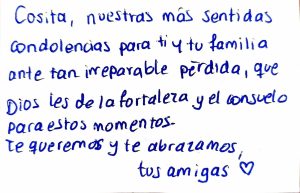 Cosita, nuestras más sentidas
condolencias para ti y tu familia
ante tan irreparable pérdida, que
Dios les de la fortaleza y el consuelo
para estos momentos.
Te queremos y te abrazamos,
tus amigas ♡